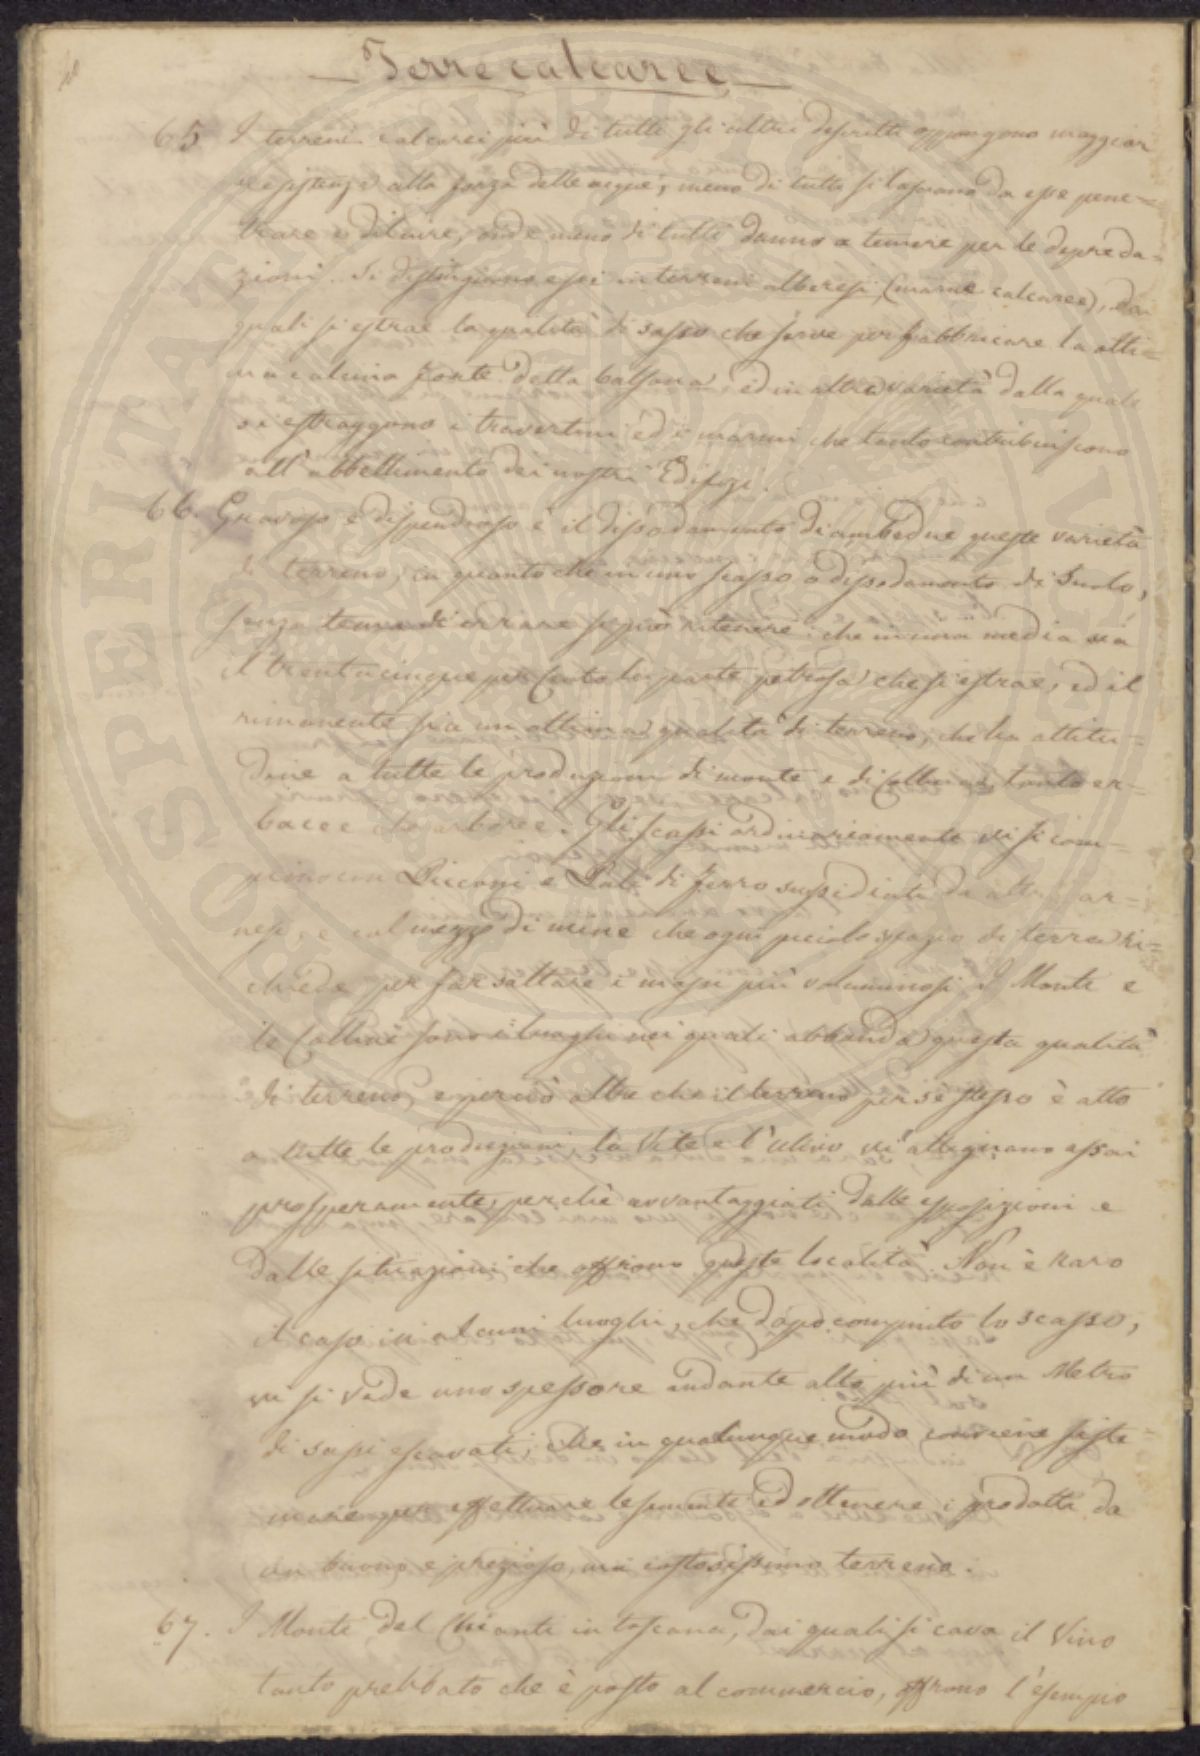 Terre calcaree
65 I terreni calcarei più di tutti gli altri descritti oppongono maggior
resistenza alla forza delle acque; meno di tutto si lasciano da esse pene=
trare e diluire, onde meno di tutti danno a temere per le depreda=
zioni. Si distinguono essi in terreni alberesi (marne calcaree), dai
quali si estrae la qualità di sasso che serve per fabbricare la otti=
ma calcina forte detta , ed in altra varietà dalla quale
si estraggono i travertini ed i marmi che tanto contribuiscono
all'abbellimento dei nostri Edifizj.
66. Gravoso e dispendioso è il dissodamento di ambedue queste varietà
di terreno; in quanto che in uno scasso o dissodamento di suolo,
senza tema di errare si può ritenere che in una media sia
il trentacinque per cento la parte petrosa che si estrae, ed il
rimanente sia un ottima qualità di terreno, che ha attitu=
dine a tutte le produzioni di monte e di Collina, tanto er=
bacee che arboree. Gli scassi ordinariamente vi si com=
piono con Picconi e Pali di ferro sussidiati da altri ar=
nesi, e col mezzo di mine che ogni piccolo spazio di terra ri=
chiede per far saltare i massi più voluminosi. I Monti e
le Colline sono i luoghi nei quali abbonda questa qualità
di terreno, e perciò oltre che il terreno per sè stesso è atto
a tutte le produzioni, la Vite e l'ulivo vi allignano assai
prosperamente, perchè avvantaggiati dalle esposizioni e
dalle situazioni che offrono queste località. Non è raro
il caso in alcuni luoghi, che dopo compiuto lo scasso,
vi si vede uno spessore andante alto più di un Metro
di sassi escavati, che in qualunque modo conviene siste
mare per effettuare le sementi ed ottenere i prodotti da
un buono e prezioso, ma costosissimo terreno.
67. I Monti del Chianti in toscana, dai quali si cava il Vino
tanto prelibato che è posto al commercio, offrono l'esempio
PROSPERITATI PUBLICAE